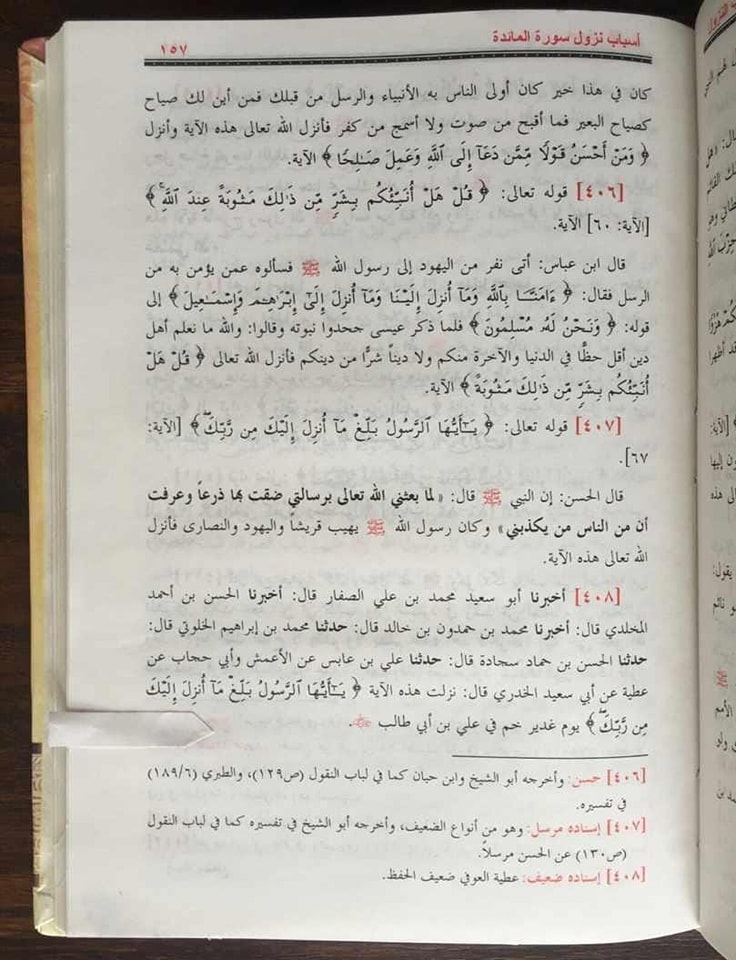 أسباب نزول سورة المائدة ١٥٧
كان في هذا خير كان أولى الناس به الأنبياء والرسل من قبلك فمن أين لك صياح
كصياح البعير فما أقبح من صوت ولا أسمج من كفر فأنزل الله تعالى هذه الآية وأنزل
﴿ وَمَنْ أَحْسَنُ قَوْلًا مِّمَّن دَعَا إِلَى اللَّهِ وَعَمِلَ صَالِحًا ﴾ الآية.
[٤٠٦] قوله تعالى: ﴿ قُلْ هَلْ أُنَبِّئُكُم بِشَرٍّ مِّن ذَٰلِكَ مَثُوبَةً عِندَ اللَّهِ ۚ ﴾
[الآية: ٦٠] الآية.
قال ابن عباس: أتى نفر من اليهود إلى رسول الله ﷺ فسألوه عمن يؤمن به من
الرسل فقال: ﴿ ءَامَنَّا بِاللَّهِ وَمَا أُنزِلَ إِلَيْنَا وَمَا أُنزِلَ إِلَىٰ إِبْرَاهِيمَ وَإِسْمَاعِيلَ ﴾ إلى
قوله: ﴿ وَنَحْنُ لَهُ مُسْلِمُونَ ﴾ فلما ذكر عيسى جحدوا نبوته وقالوا: والله ما نعلم أهل
دين أقل حظًّا في الدنيا والآخرة منكم ولا ديناً شرًّا من دينكم فأنزل الله تعالى ﴿ قُلْ هَلْ
أُنَبِّئُكُم بِشَرٍّ مِّن ذَٰلِكَ مَثُوبَةً ﴾ الآية.
[٤٠٧] قوله تعالى: ﴿ يَـٰٓأَيُّهَا الرَّسُولُ بَلِّغْ مَا أُنزِلَ إِلَيْكَ مِن رَّبِّكَ ۖ ﴾ [الآية:
٦٧].
قال الحسن: إن النبي ﷺ قال: «لما بعثني الله تعالى برسالتي ضقت بها ذرعاً وعرفت
أن من الناس من يكذبني» وكان رسول الله ﷺ يهيب قريشاً واليهود والنصارى فأنزل
الله تعالى هذه الآية.
[٤٠٨] أخبرنا أبو سعيد محمد بن علي الصفار قال: أخبرنا الحسن بن أحمد
المخلدي قال: أخبرنا محمد بن حمدون بن خالد قال: حدثنا محمد بن إبراهيم الخلوتي قال:
حدثنا الحسن بن حماد سجادة قال: حدثنا علي بن عابس عن الأعمش وأبي حجاب عن
عطية عن أبي سعيد الخدري قال: نزلت هذه الآية ﴿ يَـٰٓأَيُّهَا الرَّسُولُ بَلِّغْ مَا أُنزِلَ إِلَيْكَ
مِن رَّبِّكَ ۖ ﴾ يوم غدير خم في علي بن أبي طالب .
[٤٠٦] حسن: وأخرجه أبو الشيخ وابن حيان كما في لباب النقول (ص١٢٩)، والطبري (١٨٩/٦)
في تفسيره.
[٤٠٧] إسناده مرسل: وهو من أنواع الضعيف، وأخرجه أبو الشيخ في تفسيره كما في لباب النقول
(ص١٣٠) عن الحسن مرسلاً.
[٤٠٨] إسناده ضعيف: عطية العوفي ضعيف الحفظ.